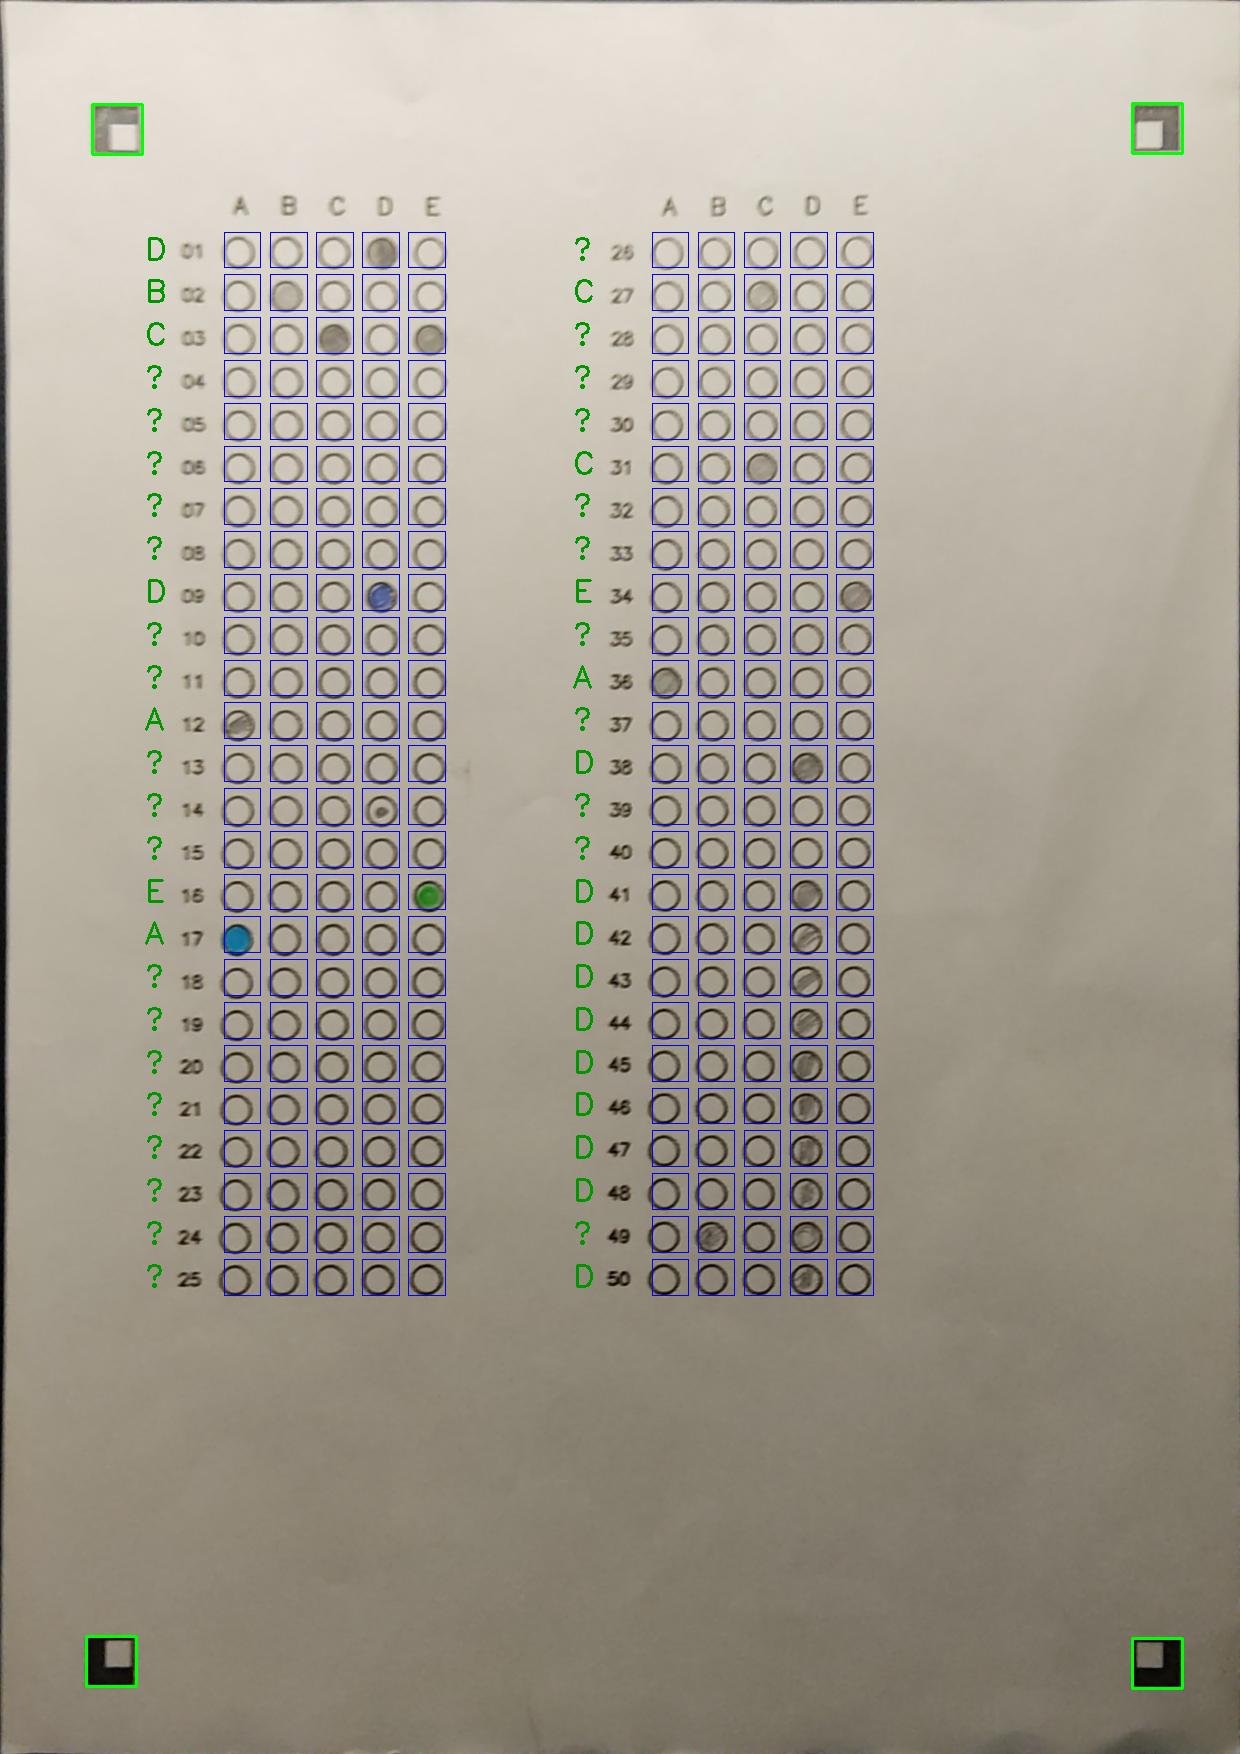 A B C D E
D 01
B 02
C 03
? 04
? 05
? 06
? 07
? 08
D 09
? 10
? 11
A 12
? 13
? 14
? 15
E 16
A 17
? 18
? 19
? 20
? 21
? 22
? 23
? 24
? 25
A B C D E
? 26
C 27
? 28
? 29
? 30
C 31
? 32
? 33
E 34
? 35
A 36
? 37
D 38
? 39
? 40
D 41
D 42
D 43
D 44
D 45
D 46
D 47
D 48
? 49
D 50